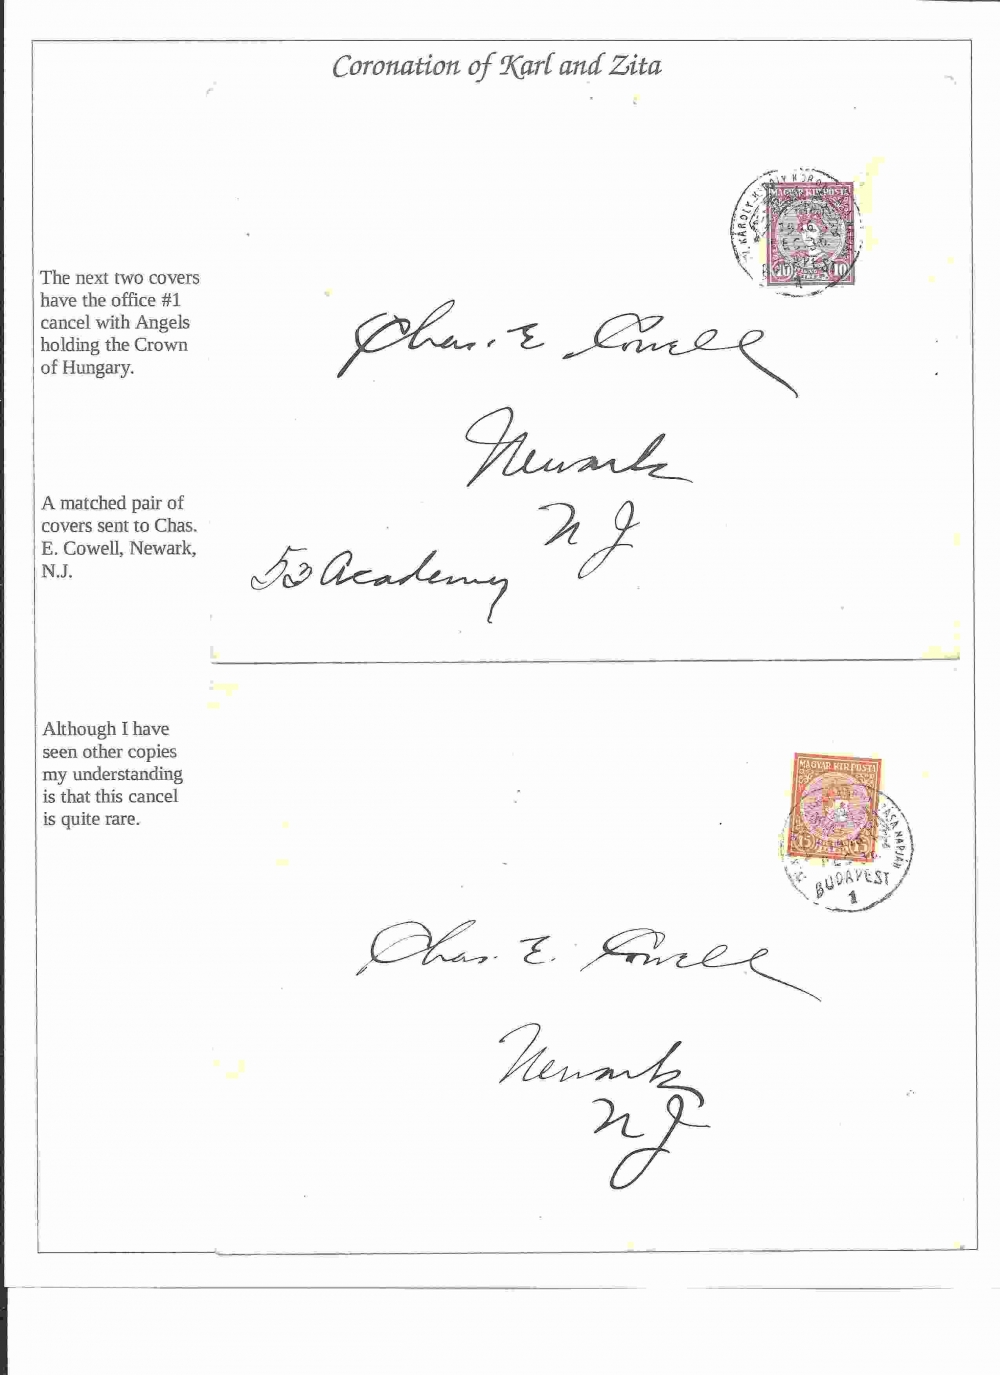 Coronation of Karl and Zita
The next two covers
have the office #1
cancel with Angels
holding the Crown
of Hungary.
MAGYAR KIR POSTA
10
BUDAPEST
1
Chas. E Cowell
Newark
N J
53 Academy
A matched pair of
covers sent to Chas.
E. Cowell, Newark,
N.J.
Although I have
seen other copies
my understanding
is that this cancel
is quite rare.
MAGYAR KIR POSTA
15
NAPJÁN
BUDAPEST
1
Chas. E. Cowell
Newark
N J